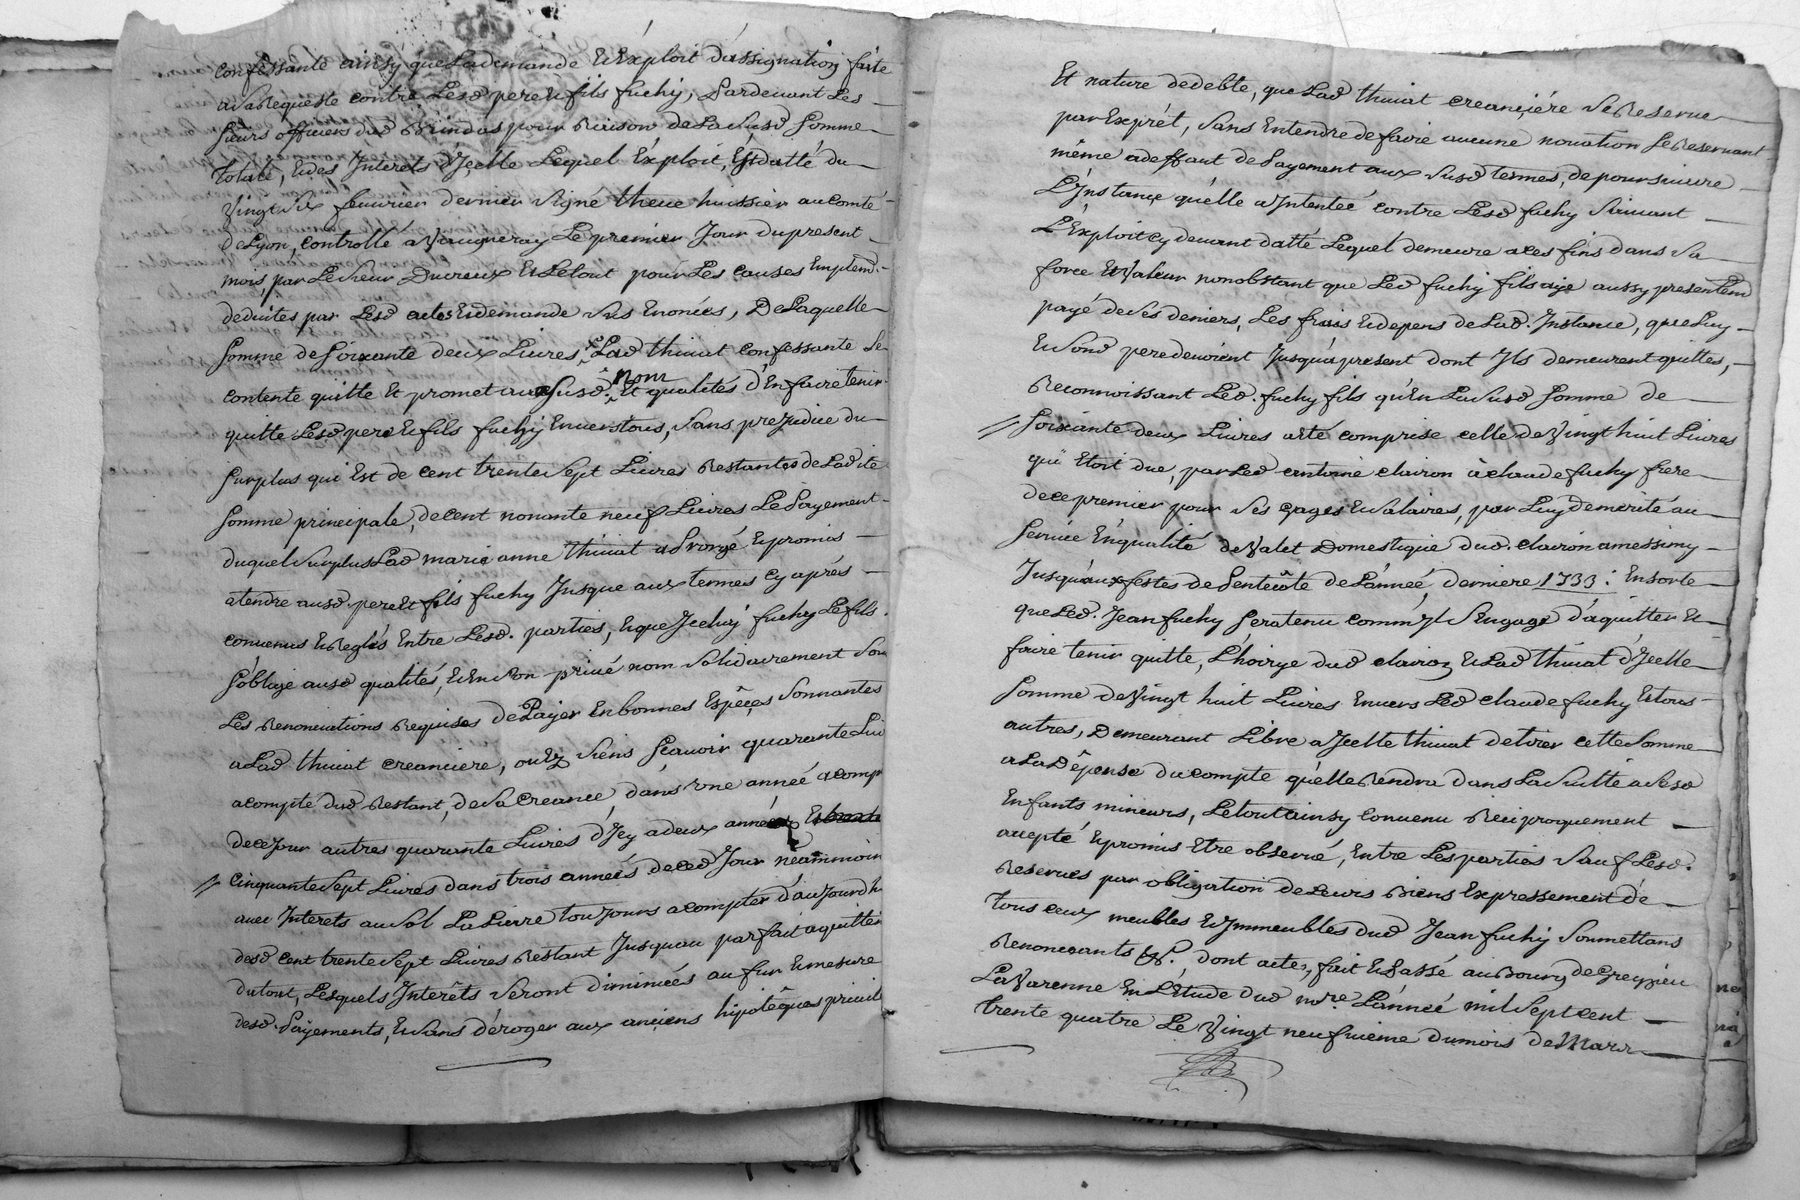 confessante ainsy que la demande et Exploit d'assignation faite
a sa Requeste contre Lesd pere et fils fuchy, Pardevant Les
sieurs officiers dud Brindas pour Raison de la susd somme
totale, et des Interets d'Jcelle Lequel Exploit, Est datté du
vingt six feuurier dernier signé theue huissier au comté
de Lyon, controllé a Vaugneray Le premier Jour du present
mois, par Le sieur Ducreux et Le tout pour Les causes Emplem.
deduites par Lesd actes et demande sus Enoncés, De Laquelle
somme de soixante deux Liures, Lad thiuat confessante se
contente quitte et promet aux susd. nom Et qualités d'En faire tenir
quitte Lesd pere et fils fuchy Enuers tous, sans prejudice du
surplus qui Est de cent trente sept Liures Restantes de Ladite
somme principale, de cent nonante neuf Liures Le Payement
duquel surplus Lad marie anne thiuat a Prorogé et promis
atendre ausd. pere et fils fuchy Jusque aux termes cy aprés
conuenus et Reglés Entre Lesd. parties, et que Jcehuy fuchy Le fils
s'oblige ausd qualités, et en son priué nom solidairement sou
Les Renonciations Requises de Payer En bonnes Espêçes sonnantes
a Lad thiuat creanciere, ou es siens sçauoir quarante Liu
acompte dud Restant, de sa Creance, dans vne anneé a comp
de ce Jour autres quarante Liures d'Jcy a deux années Et
cinquante sept Liures dans trois anneés de ced Jour neammoin
auec Interets au sol La Liure toujours a compter d'aujourdh
desd cent trente sept Liures Restant Jusquau parfait aquittem
du tout, Lesquels Interêts seront diminuées au fur et mesure
desd. Payements, et sans déroger aux anciens hipotêques priuil
Et nature de debte, que Lad thiuat creançiére se Reserue
par Exprét, sans Entendre de faire aucune nouation se Reseruant
même a deffaut de Payement aux susd termes, de poursuiure
L'Jnstançe qu'elle a Jntenteé contre Lesd fuchy suiuant
L'Exploit cy deuant datté Lequel demeure a ces fins dans sa
force et Valeur nonobstant que Led fuchy fils aye aussy presentem
payé de ses deniers, Les frais et depens de Lad. Jnstance, que Luy
et sond pere deuoient Jusqu'a present dont Jls demeurent quittes,
Reconnoissant Led. fuchy fils qu'En La susd somme de
soixante deux Liures a été comprise celle de Vingt huit Liures
qui Etoit due, par Led antoine clairon à claude fuchy frere
de ce premier pour ses gages et salaires, par Luy demerité au
seruice En qualité de Valet Domestique dud. clairon a messimy
Jusqu'aux festes de Pentecôte de L'anneé, derniere 1733: En sorte
que Led. Jean fuchy sera tenu comm'Jl s'Engage d'aquitter et
faire tenir quitte, L'hoirye dud clairon et Lad thiuat d'Jcelle
somme de Vingt huit Liures Enuers Led claude fuchy et tous
autres, Demeurant Libre a Jcelle thiuat de tirer cette somme
a La Dêpense du compte qu'elle Rendra dans La suitte a sesd
Enfants mineurs, Le tout ainsy conuenu Réciproquement
accepté et promis Etre obserué, Entre Les parties sauf Lesd.
Reserues par obligation de Leurs Biens Expressement dé
tous ceux meubles et Jmmeubles dud Jean fuchy soumettans
Renoncants &c. dont acte, fait et Passé au Bourg de Grezieu
La Varenne En L'Etude dud nre L'anneé mil sept cent
trente quatre Le Vingt neufuieme du mois de Mars